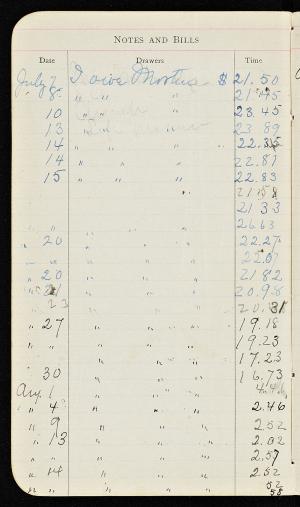 NOTES AND BILLS
Date Drawers Time
July 7 I owe $ 21.50
8 " " 21.45
10 " " 23.45
13 " 23.89
14 " " 22.85
14 " " 22.81
15 " " " 22.83
" 21.58
21 33
" " 26.63
" 20 " " " 22.27
" " " " " 22.07
" 20 " " " 21 82
" 21 " " " 20.98
" 23 " " " 20.31
" 27 " " " 19.18
" " " " " 19.23
" " " 17.23
" 30 " " " 16.73
Aug. 1 " " " 4.46
" 4 " " " 2.46
" 9 " " " 2.52
" 13 " " " 2.02
" " " " 2.57
" 14 " " " 2.52
52
" " " " " 58